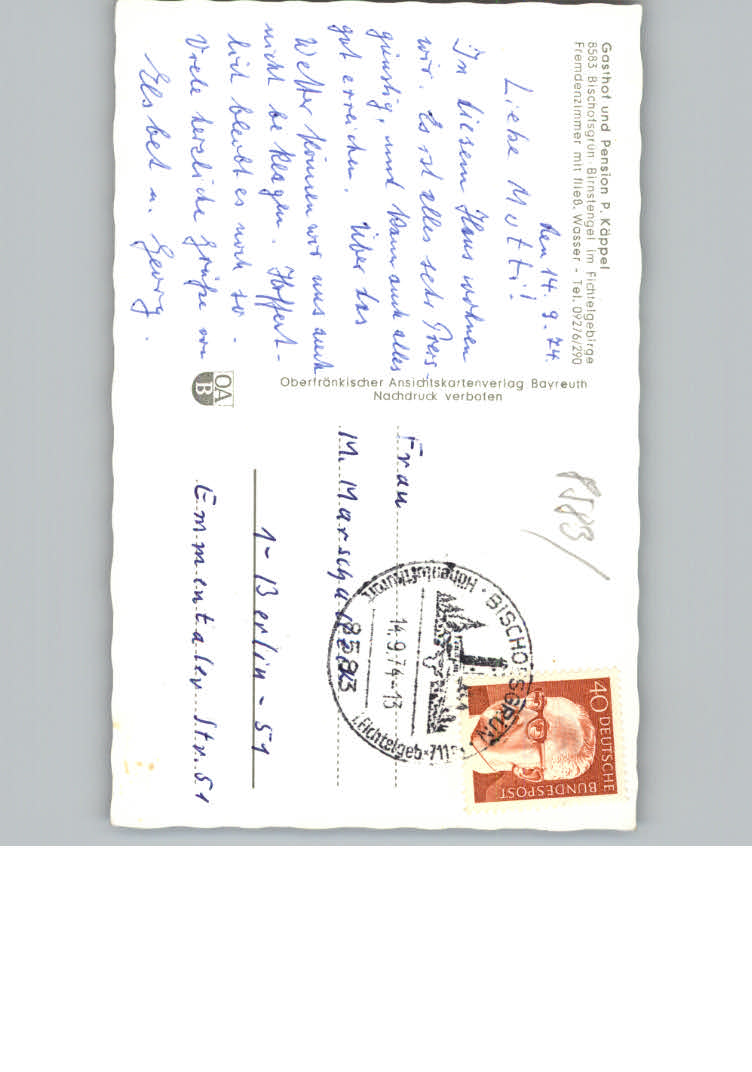 Gasthof und Pension P. Käppel
8583 Bischofsgrün-Birnstengel im Fichtelgebirge
Fremdenzimmer mit fließ. Wasser - Tel. 09276/290
den 14.9.74.
Liebe Mutti!
In diesem Haus wohnen
wir. Es ist alles sehr Preis-
günstig, und kann auch alles
gut erreichen. Über das
Wetter können wir uns auch
nicht beklagen. Hoffent-
lich bleibt es noch so.
Viele herzliche Grüße von
Elsbet u. Georg.
Oberfränkischer Ansichtskartenverlag Bayreuth
Nachdruck verboten
OA
B
8583/
40 DEUTSCHE
BUNDESPOST
BISCHOFSGRÜN
Höhenluftkurort
14.9.74-13
8583
i. Fichtelgeb. 711
Frau
M.
1-Berlin-51
Emmentaler Str. 51